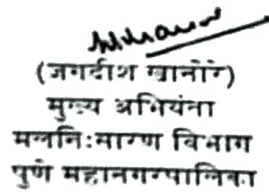 (जगदीश खानोरे)
मुख्य अभियंता
मलनि:सारण विभाग
पुणे महानगरपालिका